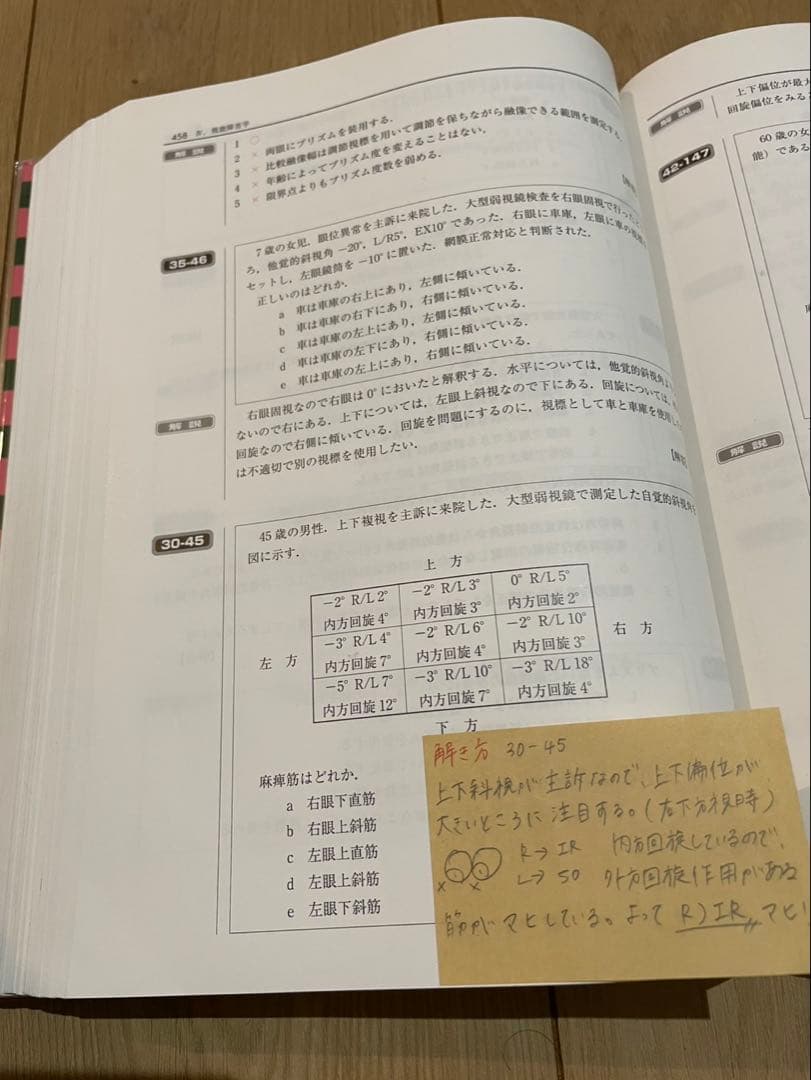 458 Ⅸ. 視能障害学
解説
1 ○
2 × 両眼にプリズムを装用する.
3 × 比較融像幅は調節視標を用いて調節を保ちながら融像できる範囲を測定する.
4 × 年齢によってプリズム度を変えることはない.
5 × 限界点よりもプリズム度数を弱める.
35-46
7歳の女児. 眼位異常を主訴に来院した. 大型弱視鏡検査を右眼固視で行ったと
ろ, 他覚的斜視角 −20°, L/R5°, EX10°であった. 右眼に車庫, 左眼に車の視標
セットし, 左眼鏡筒を −10°に置いた. 網膜正常対応と判断された.
正しいのはどれか.
a 車は車庫の右上にあり, 左側に傾いている.
b 車は車庫の右下にあり, 右側に傾いている.
c 車は車庫の左上にあり, 左側に傾いている.
d 車は車庫の左下にあり, 右側に傾いている.
e 車は車庫の左上にあり, 右側に傾いている.
解説
右眼固視なので右眼は0°においたと解釈する. 水平については, 他覚的斜視角
ないので右にある. 上下については, 左眼上斜視なので下にある. 回旋については,
回旋なので右側に傾いている. 回旋を問題にするのに, 視標として車と車庫を使用し
は不適切で別の視標を使用したい.
30-45
45歳の男性. 上下複視を主訴に来院した. 大型弱視鏡で測定した自覚的斜視角を
図に示す.
上方
−2° R/L 2° −2° R/L 3° 0° R/L 5°
内方回旋 4° 内方回旋 3° 内方回旋 2°
左方 −3° R/L 4° −2° R/L 6° −2° R/L 10° 右方
内方回旋 7° 内方回旋 4° 内方回旋 3°
−5° R/L 7° −3° R/L 10° −3° R/L 18°
内方回旋 12° 内方回旋 7° 内方回旋 4°
下方
麻痺筋はどれか.
a 右眼下直筋
b 右眼上斜筋
c 左眼上直筋
d 左眼上斜筋
e 左眼下斜筋
解き方 30-45
上下斜視が主訴なので、上下偏位が
大きいところに注目する。(右下方視時)
R→IR 内方回旋しているので、
L→SO 外方回旋作用がある
筋がマヒしている。よって R)IR マヒ
上下偏位が最
回旋偏位をみる
解説
42-147
60歳の女
能)であ
解説